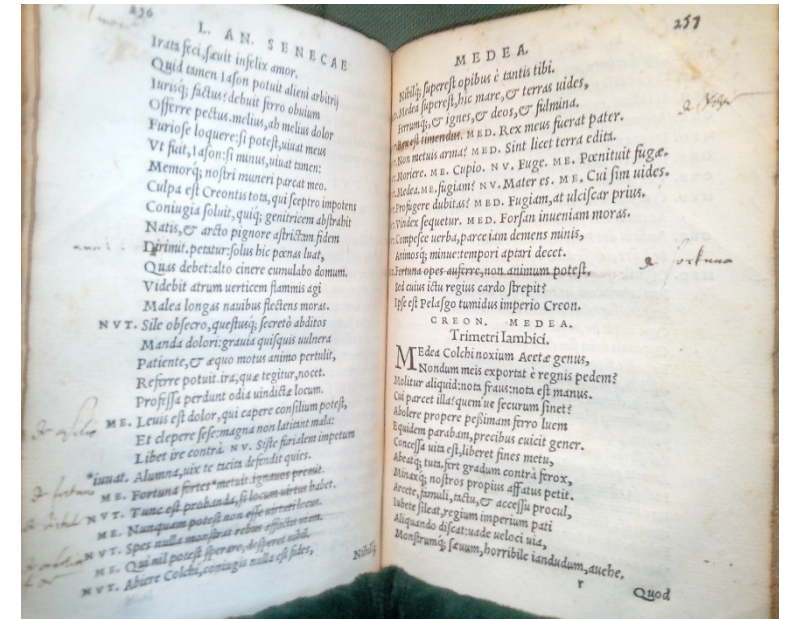 236
L. AN. SENECAE
Irata feci, sæuit infelix amor.
Quid tamen Iason potuit alieni arbitrij
Iurisq; factus? debuit ferro obuium
Offerre pectus. melius, ah melius dolor
Furiose loquere: si potest, uiuat meus
Vt fuit, Iason: si minus, uiuat tamen:
Memorq; nostri muneri parcat meo.
Culpa est Creontis tota, qui sceptro impotens
Coniugia soluit, quiq; genitricem abstrahit
Natis, & arcto pignore astrictam fidem
Dirimit. petatur: solus hic pœnas luat,
Quas debet: alto cinere cumulabo domum.
Videbit atrum uerticem flammis agi
Malea longas nauibus flectens moras.
NVT. Sile obsecro, questusq; secretò abditos
Manda dolori: grauia quisquis uulnera
Patiente, & æquo motus animo pertulit,
Referre potuit. ira, quæ tegitur, nocet.
Professa perdunt odia uindictæ locum.
ME. Leuis est dolor, qui capere consilium potest,
Et clepere sese: magna non latitant mala:
Libet ire contrà. NV. Siste furialem impetum
*iuuat. Alumna, uix te tacita defendit quies.
ME. Fortuna fortes *metuit. ignauos premit.
NVT. Tunc est probanda, si locum uirtus habet.
ME. Nunquam potest non esse uirtuti locus.
NVT. Spes nulla monstrat rebus afflictis uiam.
ME. Qui nil potest sperare, desperet nihil.
NVT. Abiere Colchi, coniugis nulla est fides,
Nihilq;
257
MEDEA.
Nihilq; superest opibus è tantis tibi.
Medea superest, hic mare, & terras uides,
Ferrumq;, & ignes, & deos, & fulmina.
Rex est timendus. MED. Rex meus fuerat pater.
Non metuis arma? MED. Sint licet terra edita.
Moriere. ME. Cupio. NV. Fuge. ME. Pœnituit fugæ.
Medea. ME. fugiam? NV. Mater es. ME. Cui sim uides.
Profugere dubitas? MED. Fugiam, at ulciscar prius.
Vindex sequetur. MED. Forsan inueniam moras.
Compesce uerba, parce iam demens minis,
Animosq; minue: tempori aptari decet.
Fortuna opes auferre, non animum potest,
fortuna
Sed cuius ictu regius cardo strepit?
Ipse est Pelasgo tumidus imperio Creon.
CREON. MEDEA.
Trimetri Iambici.
MEdea Colchi noxium Aeetæ genus,
Nondum meis exportat è regnis pedem?
Molitur aliquid: nota fraus: nota est manus.
Cui parcet illa? quem'ue securum sinet?
Abolere propere peßimam ferro luem
Equidem parabam, precibus euicit gener.
Concessa uita est, liberet fines metu,
Abeatq; tuta. fert gradum contrà ferox,
Minaxq; nostros propius affatus petit.
Arcete, famuli, tactu, & accessu procul,
Iubete sileat, regium imperium pati
Aliquando discat: uade ueloci uia,
Monstrumq; sæuum, horribile iandudum, auehe.
r
Quod